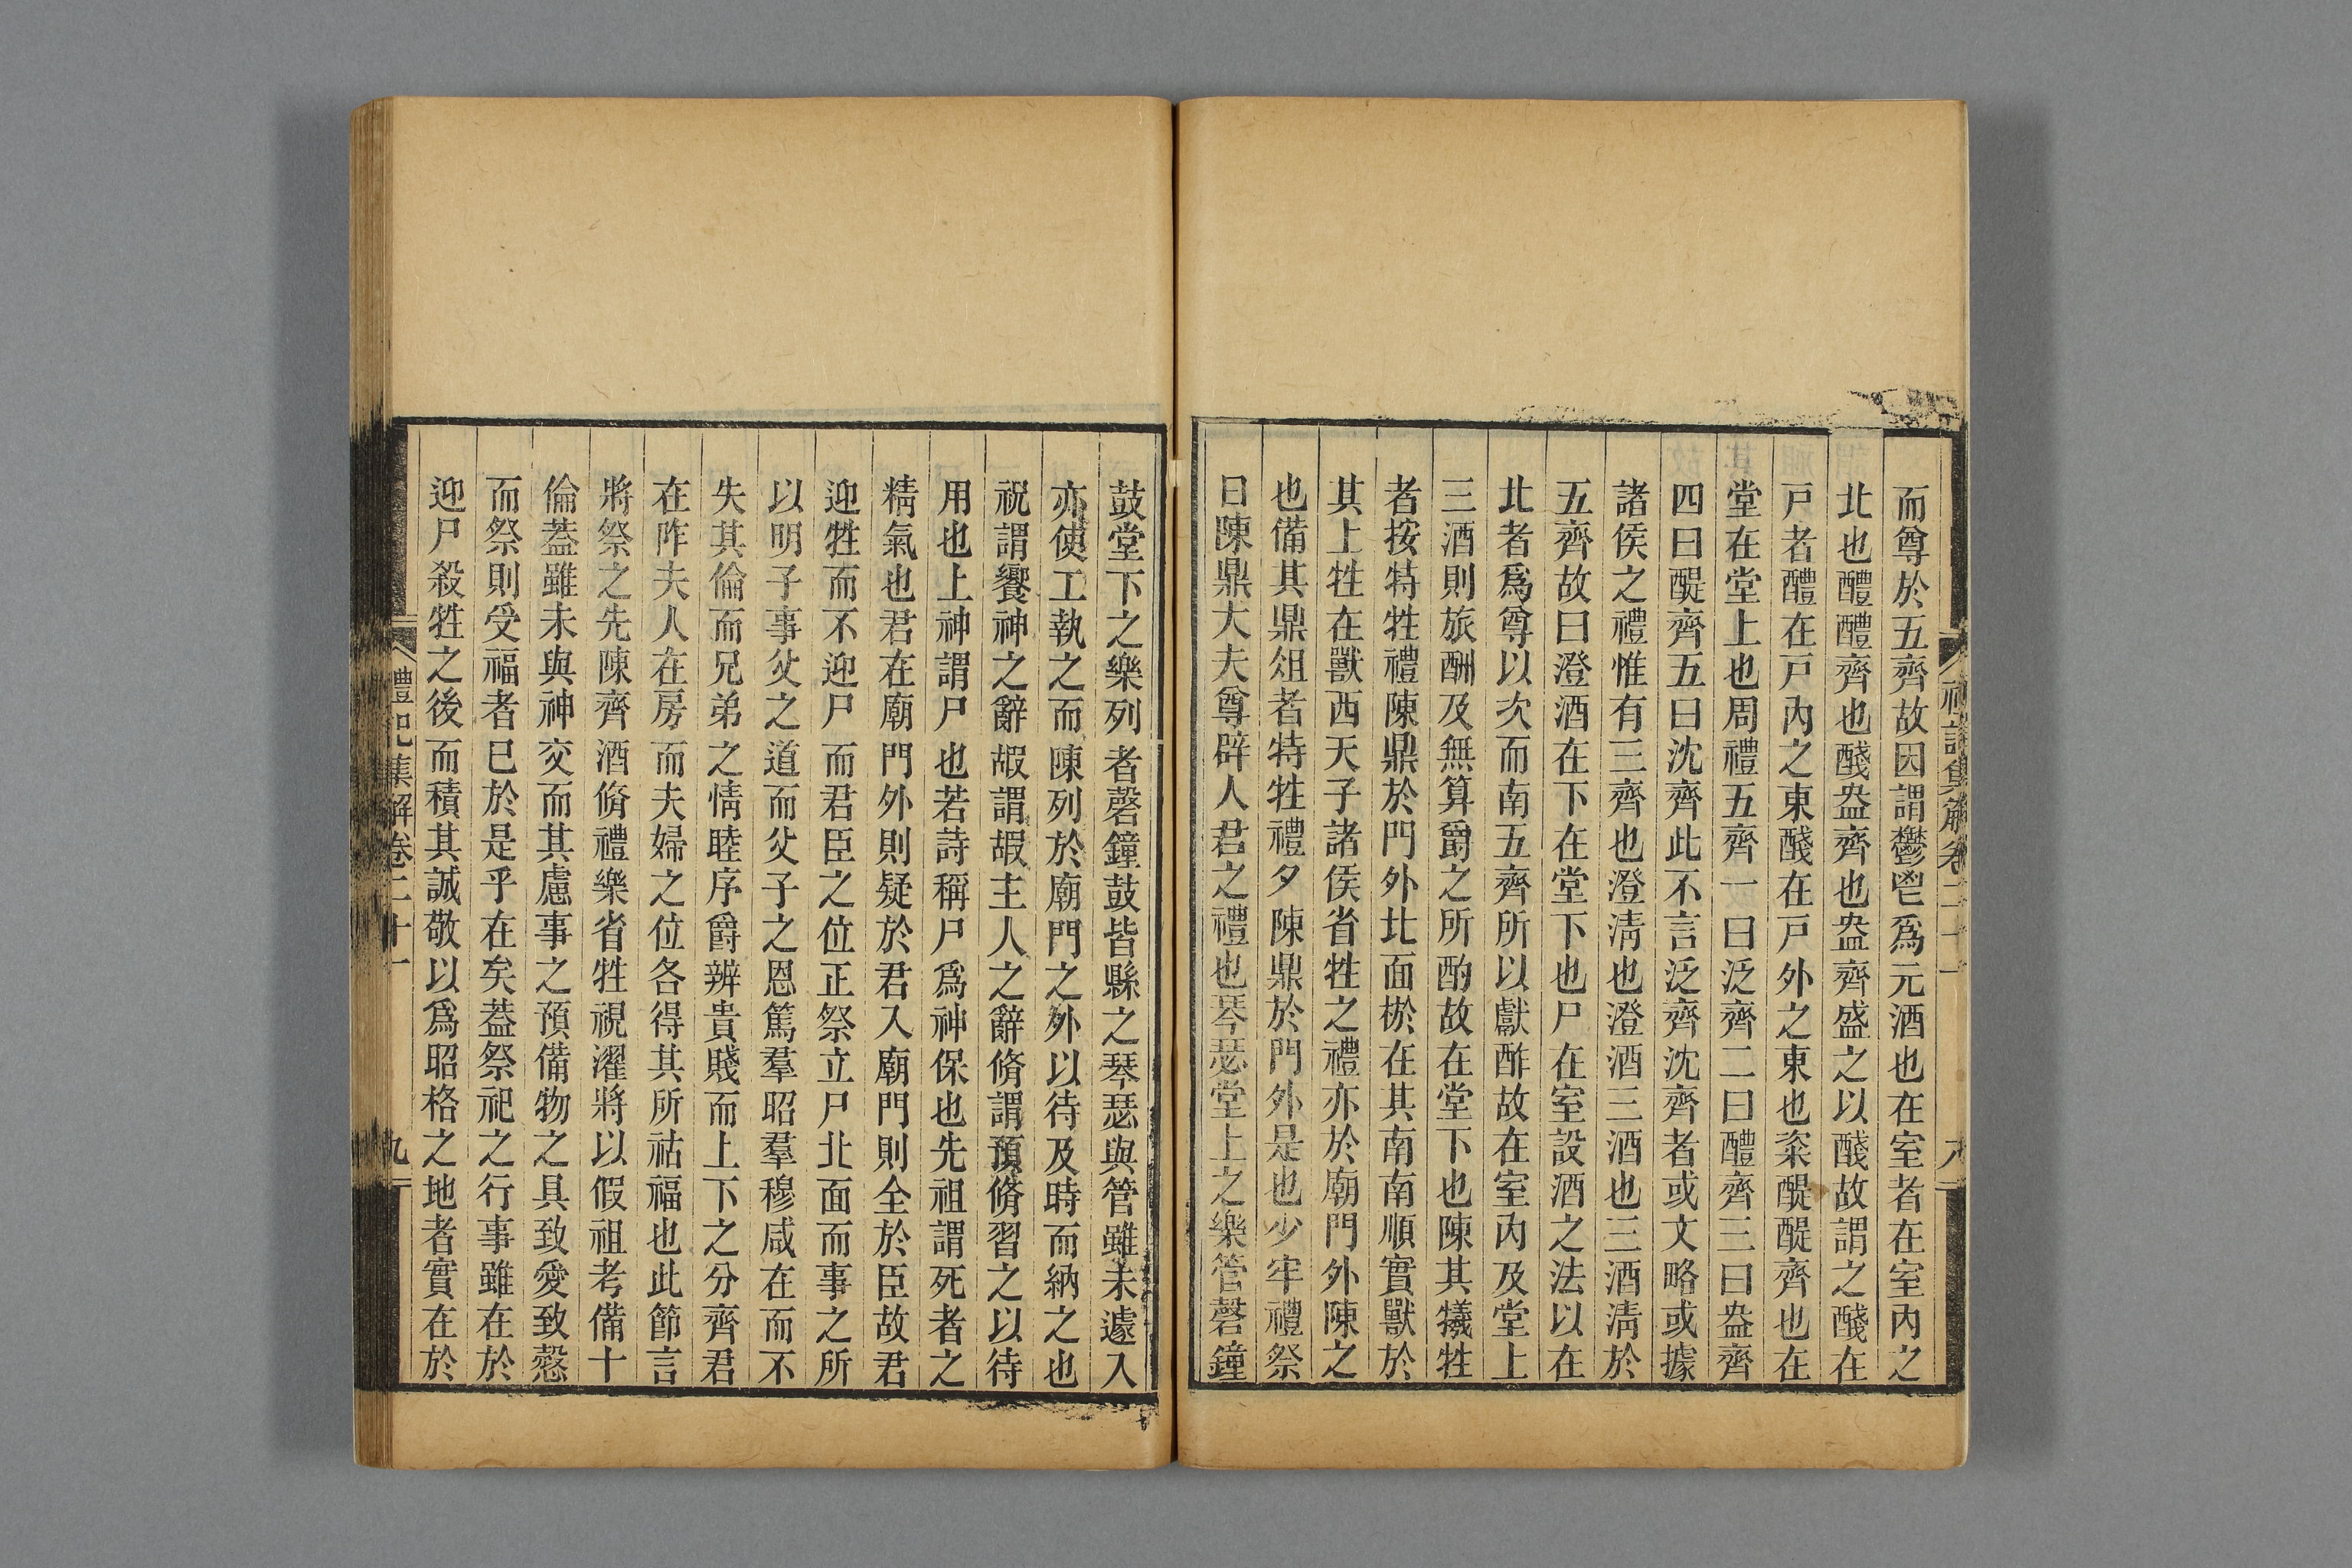 而尊於五齊故因謂鬱鬯爲元酒也在室者在室內之
北也醴醴齊也醆盎齊也盎齊盛之以醆故謂之醆在
戸者醴在戸內之東醆在戸外之東也粢醍醍齊也在
堂在堂上也周禮五齊一曰泛齊二曰醴齊三曰盎齊
四曰醍齊五曰沈齊此不言泛齊沈齊者或文略或據
諸侯之禮惟有三齊也澄淸也澄酒三酒也三酒淸於
五齊故曰澄酒在下在堂下也尸在室設酒之法以在
北者爲尊以次而南五齊所以獻酢故在室內及堂上
三酒則旅酬及無算爵之所酌故在堂下也陳其犧牲
者按特牲禮陳鼎於門外北面棜在其南南順實獸於
其上牲在獸西天子諸侯省牲之禮亦於廟門外陳之
也備其鼎俎者特牲禮夕陳鼎於門外是也少牢禮祭
日陳鼎大夫尊辟人君之禮也琴瑟堂上之樂管磬鐘
鼓堂下之樂列者磬鐘鼓皆縣之琴瑟與管雖未遽入
亦使工執之而陳列於廟門之外以待及時而納之也
祝謂饗神之辭嘏謂嘏主人之辭脩謂預脩習之以待
用也上神謂尸也若詩稱尸爲神保也先祖謂死者之
精氣也君在廟門外則疑於君入廟門則全於臣故君
迎牲而不迎尸而君臣之位正祭立尸北面而事之所
以明子事父之道而父子之恩篤羣昭羣穆咸在而不
失其倫而兄弟之情睦序爵辨貴賤而上下之分齊君
在阼夫人在房而夫婦之位各得其所祜福也此節言
將祭之先陳齊酒脩禮樂省牲視濯將以假祖考備十
倫蓋雖未與神交而其慮事之預備物之具致愛致慤
而祭則受福者已於是乎在矣蓋祭祀之行事雖在於
迎尸殺牲之後而積其誠敬以爲昭格之地者實在於
禮記集解卷二十一
九